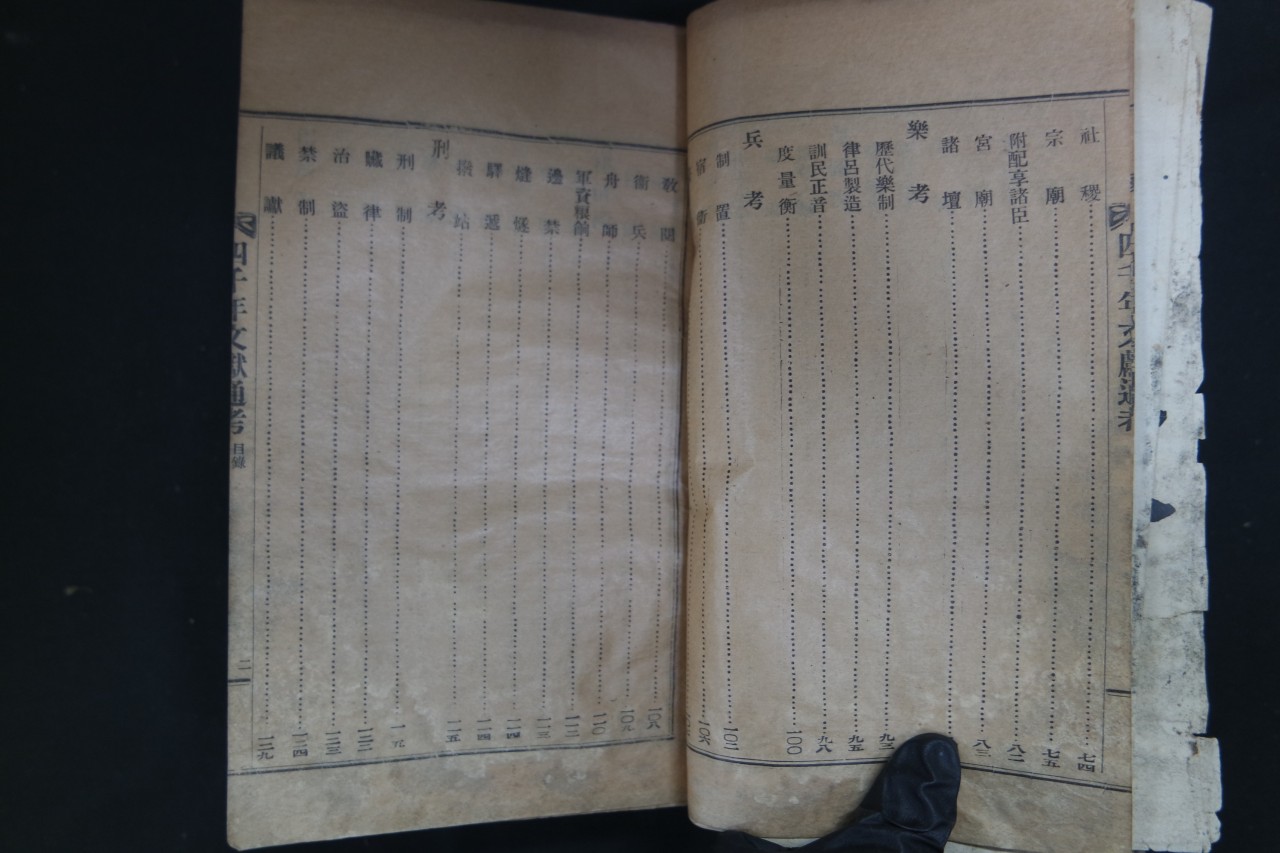 四千年文獻通考
社稷 七四
宗廟 七五
附配享諸臣 八二
宮廟 八三
諸壇
樂考
歷代樂制
律呂製造 九五
訓民正音 九八
度量衡 一〇〇
兵考
制置 一〇二
宿衛 一〇六
教閱 一〇八
衛兵 一〇九
舟師 一一〇
軍資糧餉 一一二
邊禁 一一三
烽燧 一一四
驛遞 一一四
撥站 一一五
刑考
刑制 一一九
贓律 一二二
治盜 一二三
禁制 一二四
議讞 一二九
四千年文獻通考 目錄 二